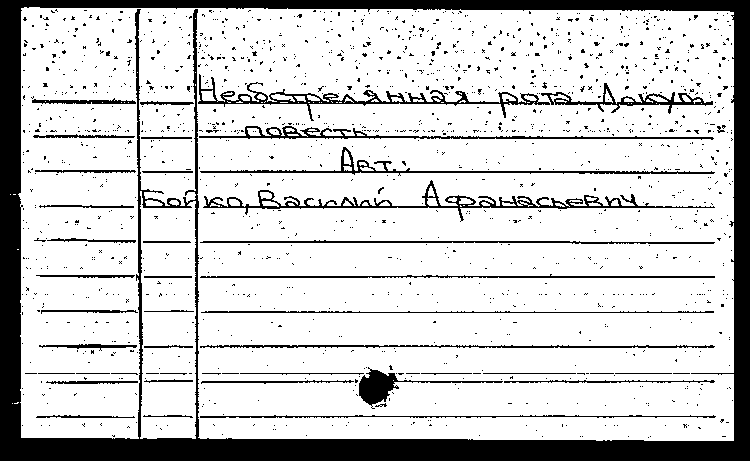 Необстрелянная рота Докум.
повесть.
Авт.:
Бойко, Василий Афанасьевич.